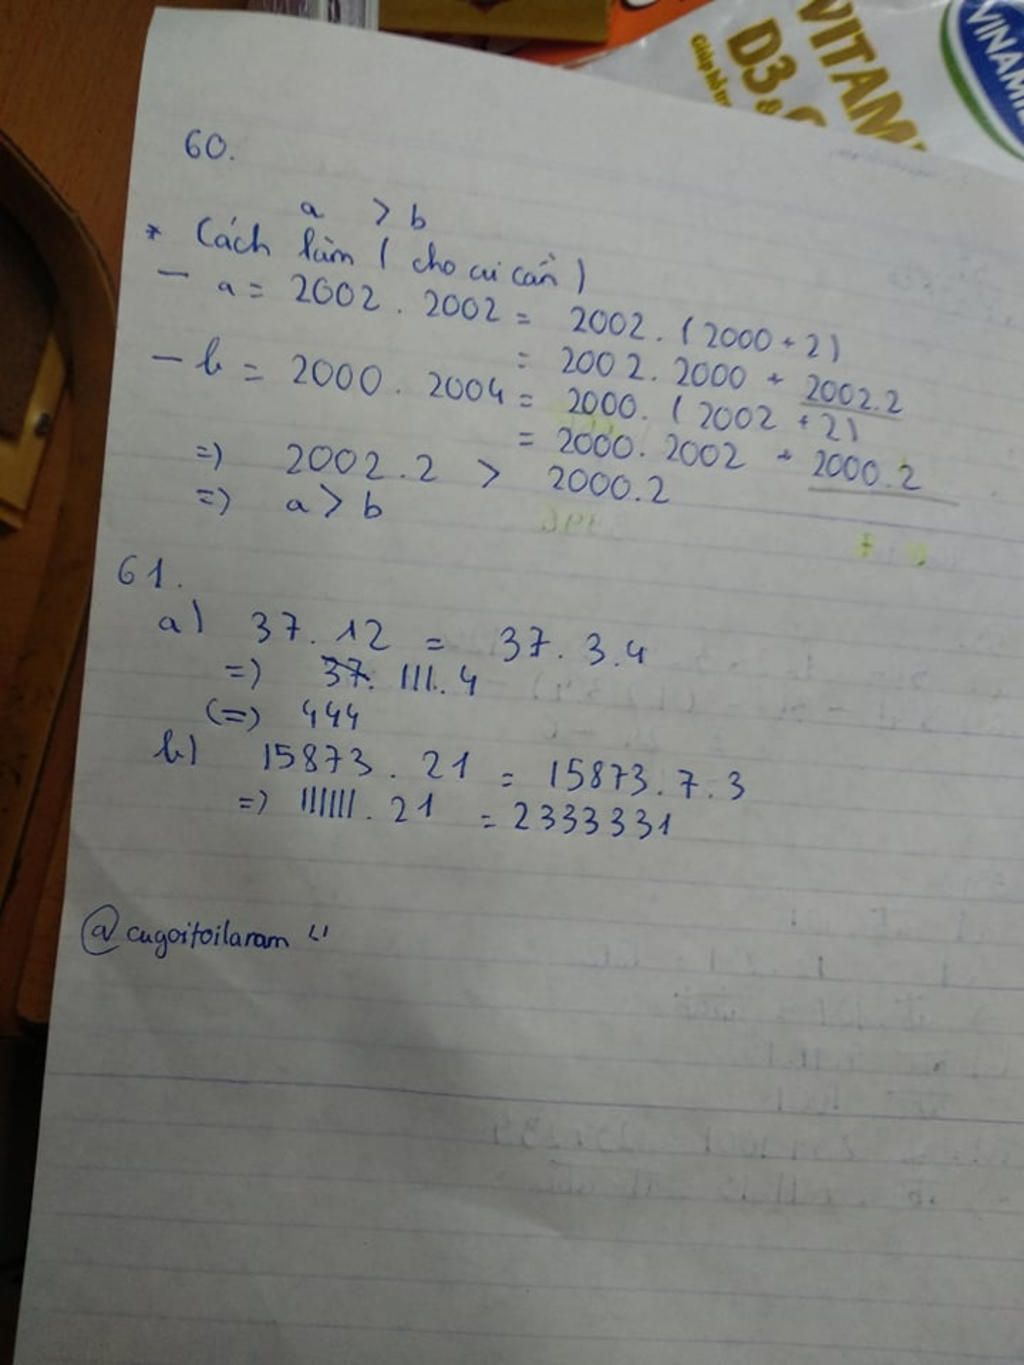 VITAMI
D3 &
VINAMI
60.
a > b
* Cách làm ( cho ai cần )
- a = 2002 . 2002 = 2002 . ( 2000 + 2 )
= 2002 . 2000 + 2002.2
- b = 2000 . 2004 = 2000 . ( 2002 + 2 )
= 2000 . 2002 + 2000.2
=> 2002 . 2 > 2000.2
=> a > b
61.
a) 37 . 12 = 37 . 3 . 4
=> 37. 111. 4
(=) 444
b) 15873 . 21 = 15873 . 7 . 3
=> 111111 . 21 = 2333331
@cugoitoilaram